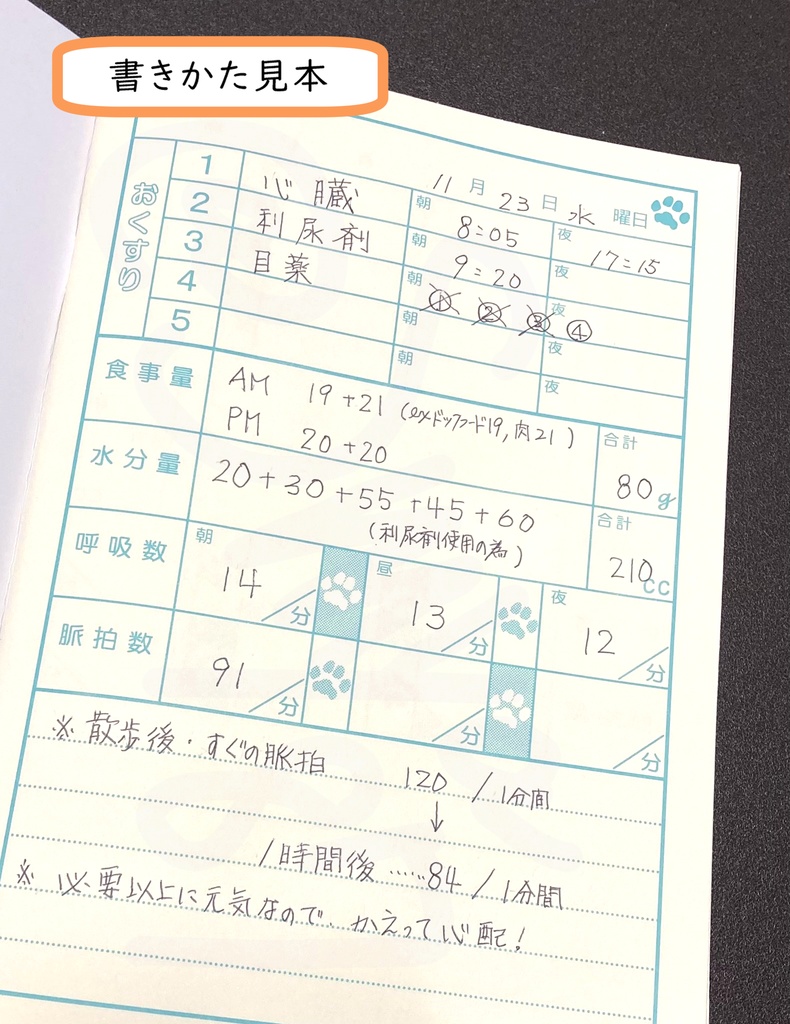 書きかた見本
11月23日水曜日
おくすり
1 心臓 朝 8:05 夜 17:15
2 利尿剤 朝 9:20 夜
3 目薬 朝 ① ② ③ 夜 ④
4 朝 夜
5 朝 夜
食事量
AM 19+21 (exドッグフード19,肉21)
PM 20+20
合計 80g
水分量
20+30+55+45+60
(利尿剤使用の為)
合計 210cc
呼吸数 朝 14/分 昼 13/分 夜 12/分
脈拍数 91/分 /分 /分
※散歩後・すぐの脈拍 120/1分間
↓
1時間後……84/1分間
※必要以上に元気なので、かえって心配!